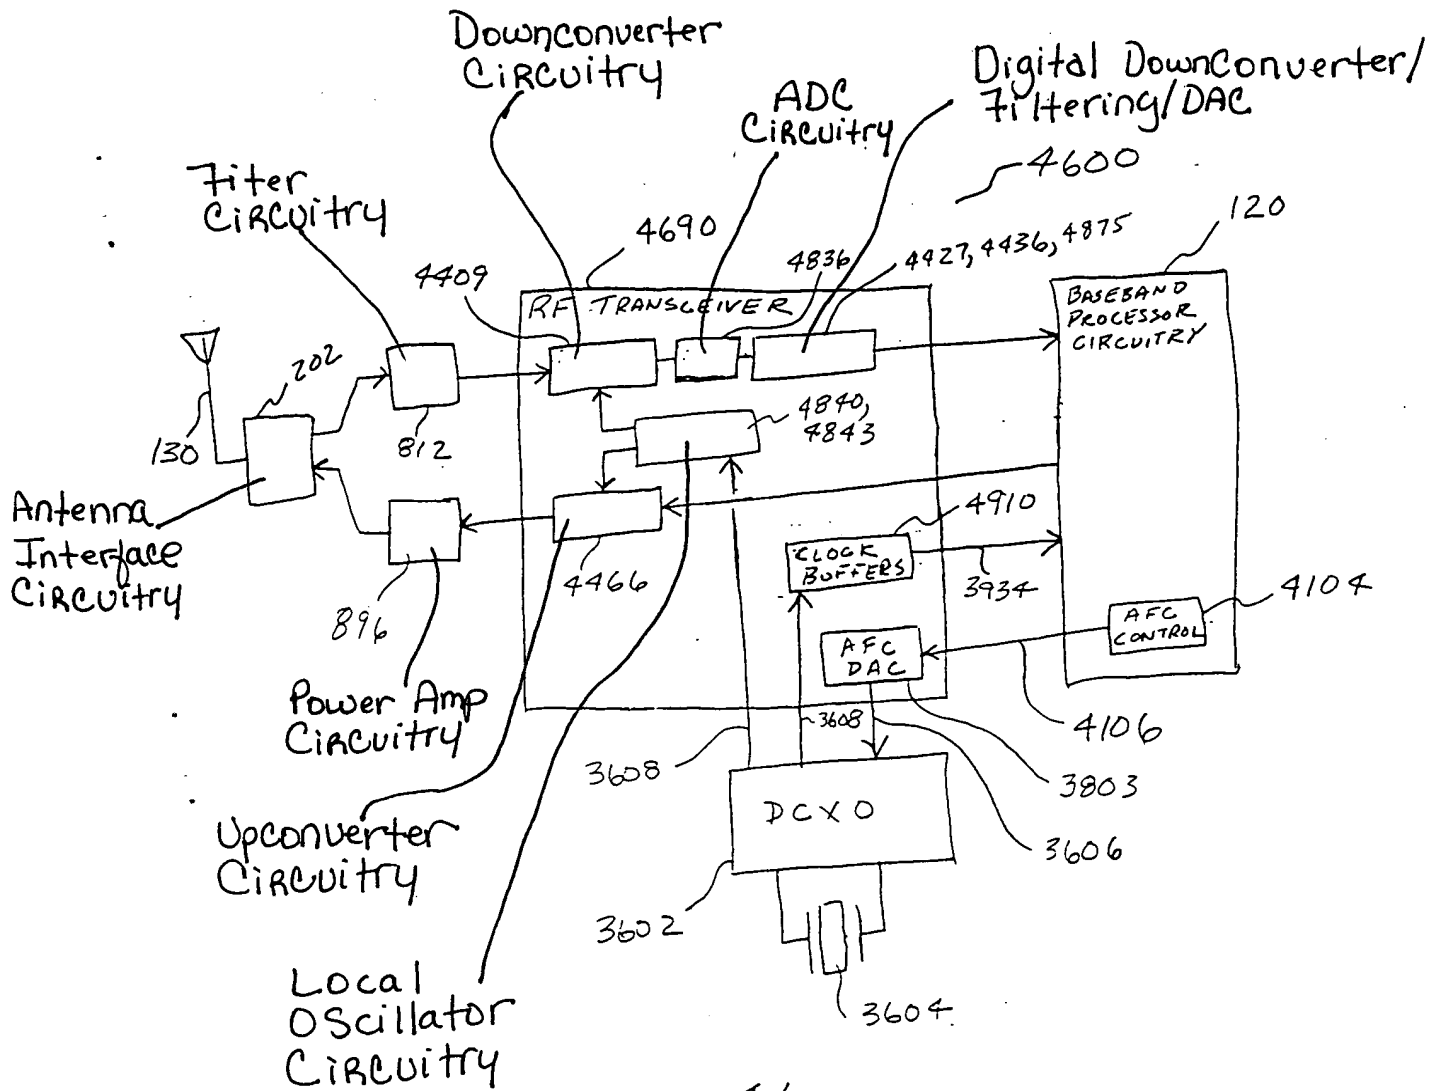 Downconverter
Circuitry
Digital Downconverter/
Filtering/DAC
ADC
Circuitry
4600
Fiter
Circuitry
4690
120
4409
4836
4427, 4436, 4875
RF TRANSCEIVER
BASEBAND
PROCESSOR
CIRCUITRY
202
130
812
4840,
4843
Antenna
Interface
Circuitry
4910
CLOCK
BUFFERS
3934
4466
896
4104
AFC
CONTROL
AFC
DAC
Power Amp
Circuitry
3608
3608
4106
3803
DCXO
3606
Upconverter
Circuitry
3602
Local
Oscillator
Circuitry
3604